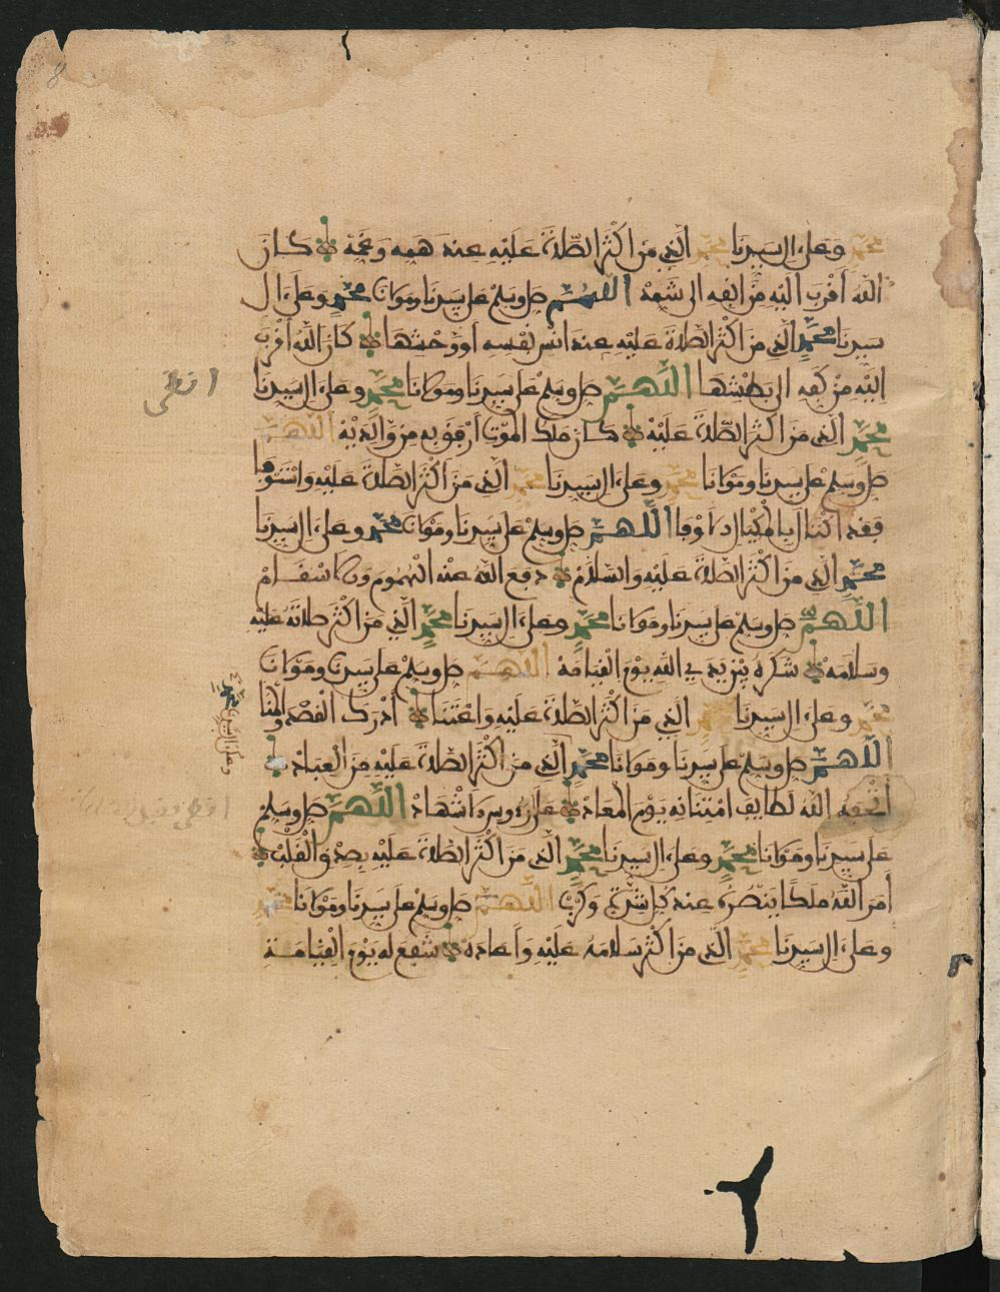 محمد وعلى ءال سيدنا محمد الذي من أكثر الصلاة عليه عند همه وغمه كان
الله أقرب إليه من أنفه إلى شمه اللهم صل وسلم على سيدنا ومولانا محمد وعلى ءال
سيدنا محمد الذي من أكثر الصلاة عليه عند أنس نفسه أو وحشتها كان الله أقرب
إليه من كفه إلى بطشتها اللهم صل وسلم على سيدنا ومولانا محمد وعلى ءال سيدنا
محمد الذي من أكثر الصلاة عليه كان ملك الموت أرفق به من والديه اللهم
صل وسلم على سيدنا ومولانا محمد وعلى ءال سيدنا محمد الذي من أكثر الصلاة عليه
فقد اكتال بالمكيال الأوفا اللهم صل وسلم على سيدنا ومولانا محمد وعلى ءال سيدنا
محمد الذي من أكثر الصلاة عليه والسلام دفع الله عنه الهموم والأسقام
اللهم صل وسلم على سيدنا ومولانا محمد وعلى ءال سيدنا محمد الذي من أكثر صلاته عليه
وسلامه شكره بين يدي الله يوم القيامة اللهم صل وسلم على سيدنا ومولانا
محمد وعلى ءال سيدنا محمد الذي من أكثر الصلاة عليه واعتنا أدرك القصد والمنا
اللهم صل وسلم على سيدنا ومولانا محمد الذي من أكثر الصلاة عليه من العباد
وعلى ءال سيدنا محمد
أتحفه الله لطايف امتنانه يوم المعاد على رءوس الأشهاد اللهم صل وسلم
على سيدنا ومولانا محمد وعلى ءال سيدنا محمد الذي من أكثر الصلاة عليه بصدق القلب
أمر الله ملكا ينصره عند كل شدة وكرب اللهم صل وسلم على سيدنا ومولانا محمد
وعلى ءال سيدنا محمد الذي من أكثر سلامه عليه وأعاده شفع له يوم القيامة